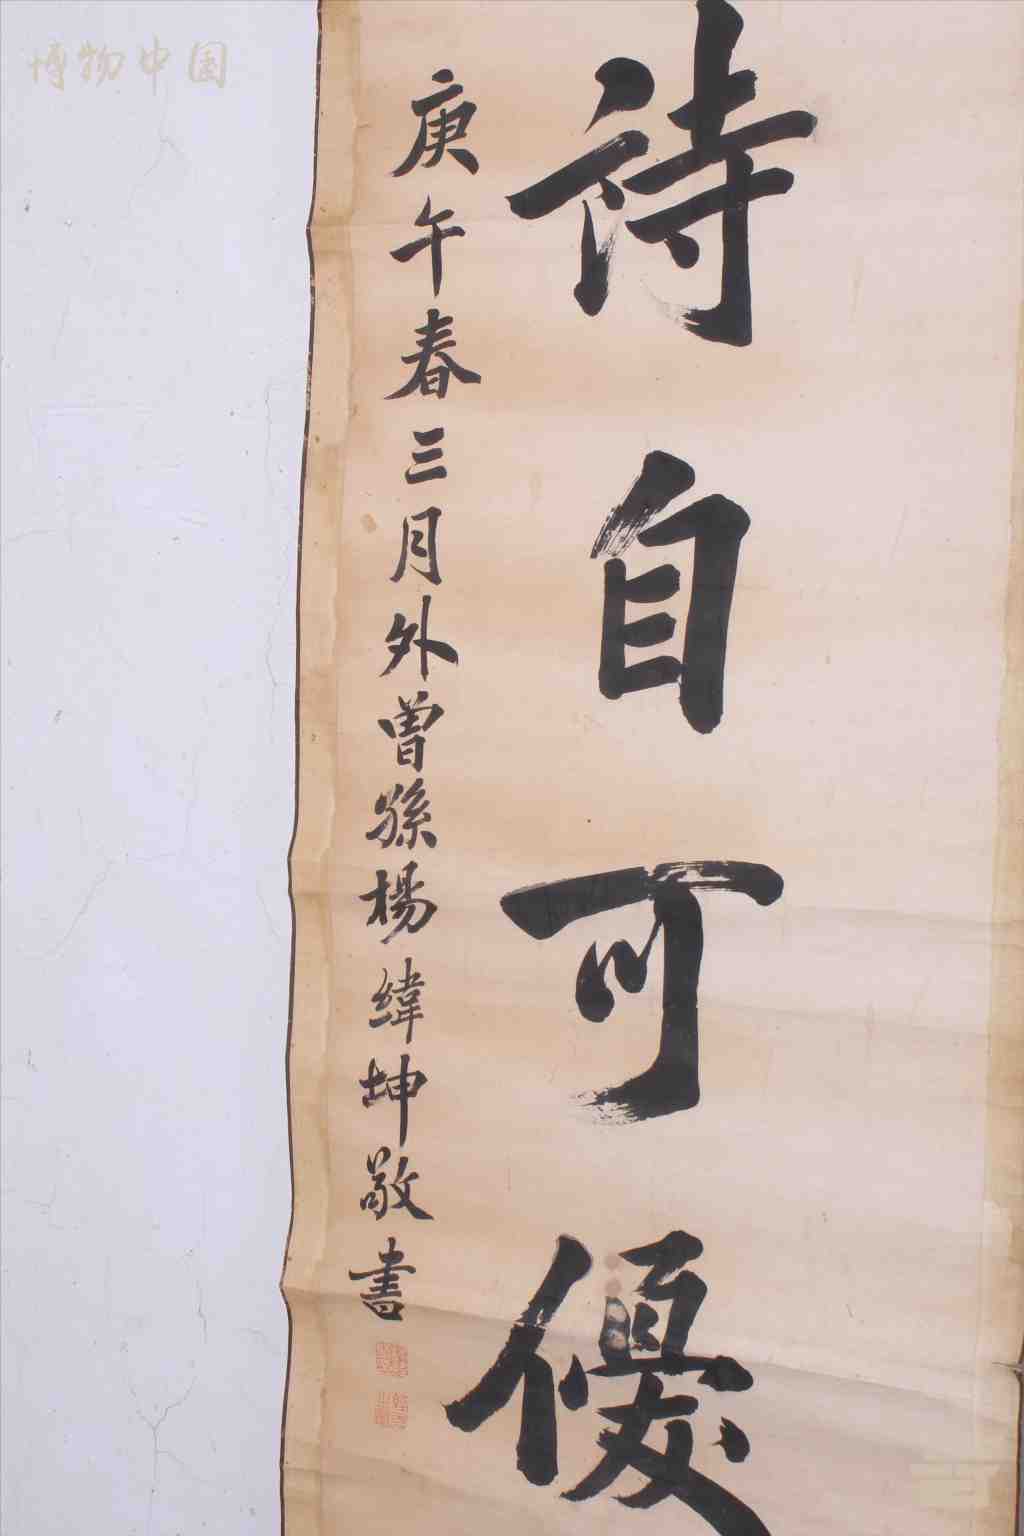 待自可優
庚午春三月外曾孫楊緯坤敬書
博物中国